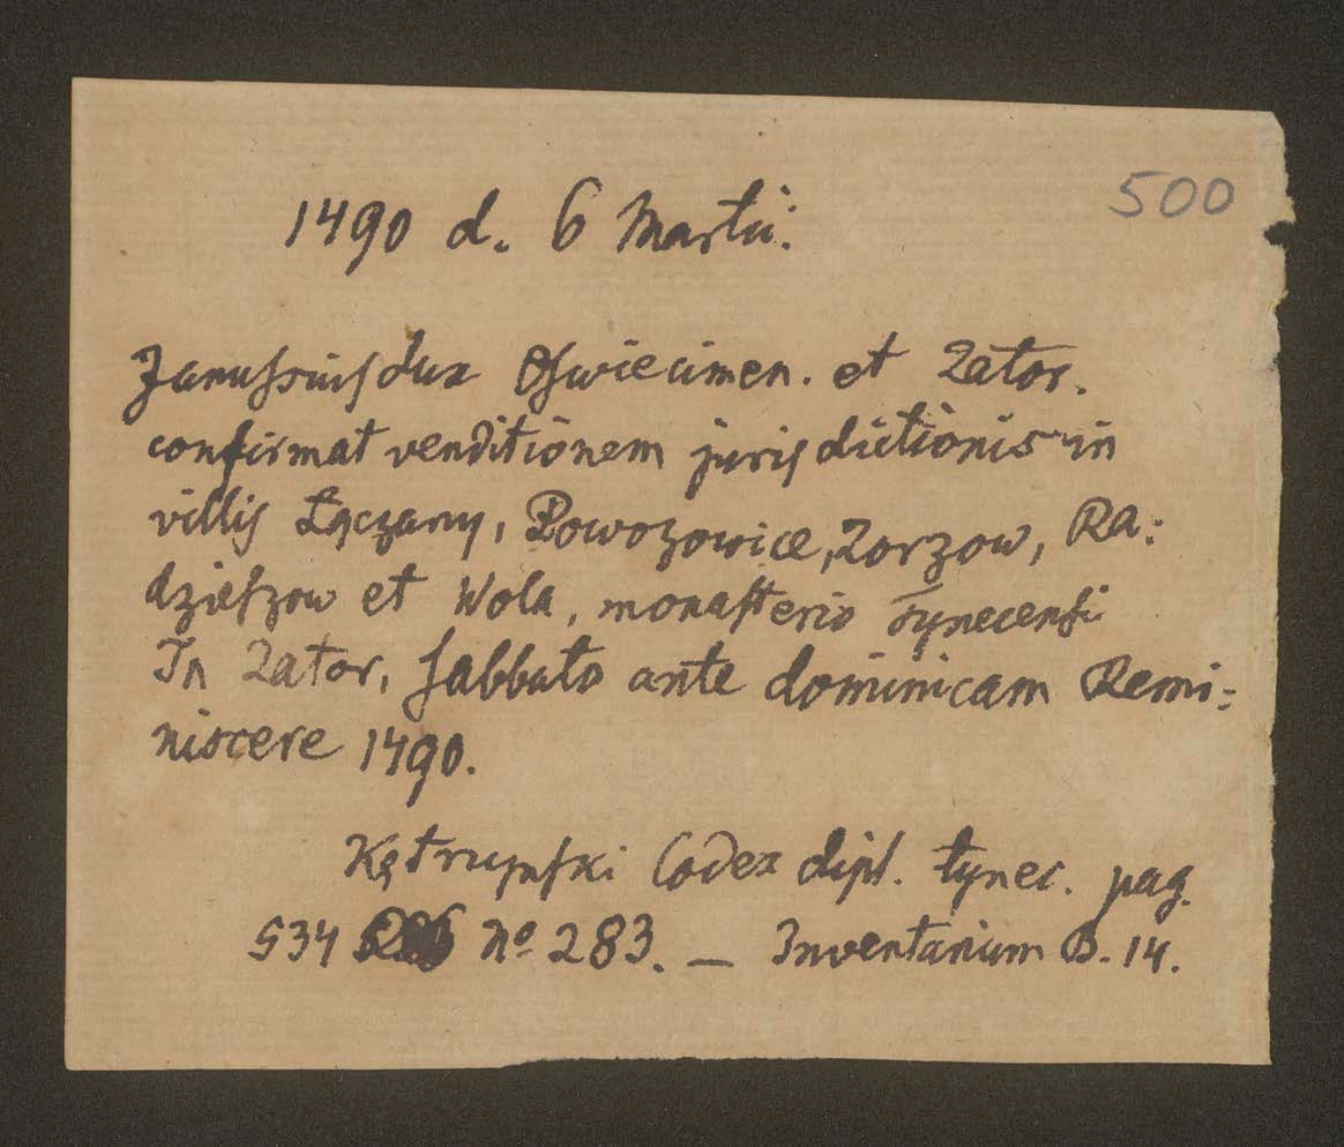 500
1490 d. 6 Martii.
Janussius dux Oswiecimen. et Zator.
confirmat venditionem jurisdictionis in
villis Łączany, Powozowice, Zorzow, Ra:
dzieszow et Wola, monasterio Tynecensi
In Zator, sabbato ante dominicam Remi:
niscere 1490.
Kętrzyński Codex dipl. tynec. pag.
534 No 283. — Inventarium B. 14.